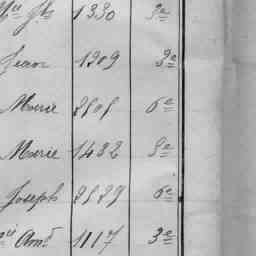 1330 3e
Jean 1309 3e
Marie 2505 6e
Marie 1432 8e
Joseph 2529 6e
Amt 1117 3e